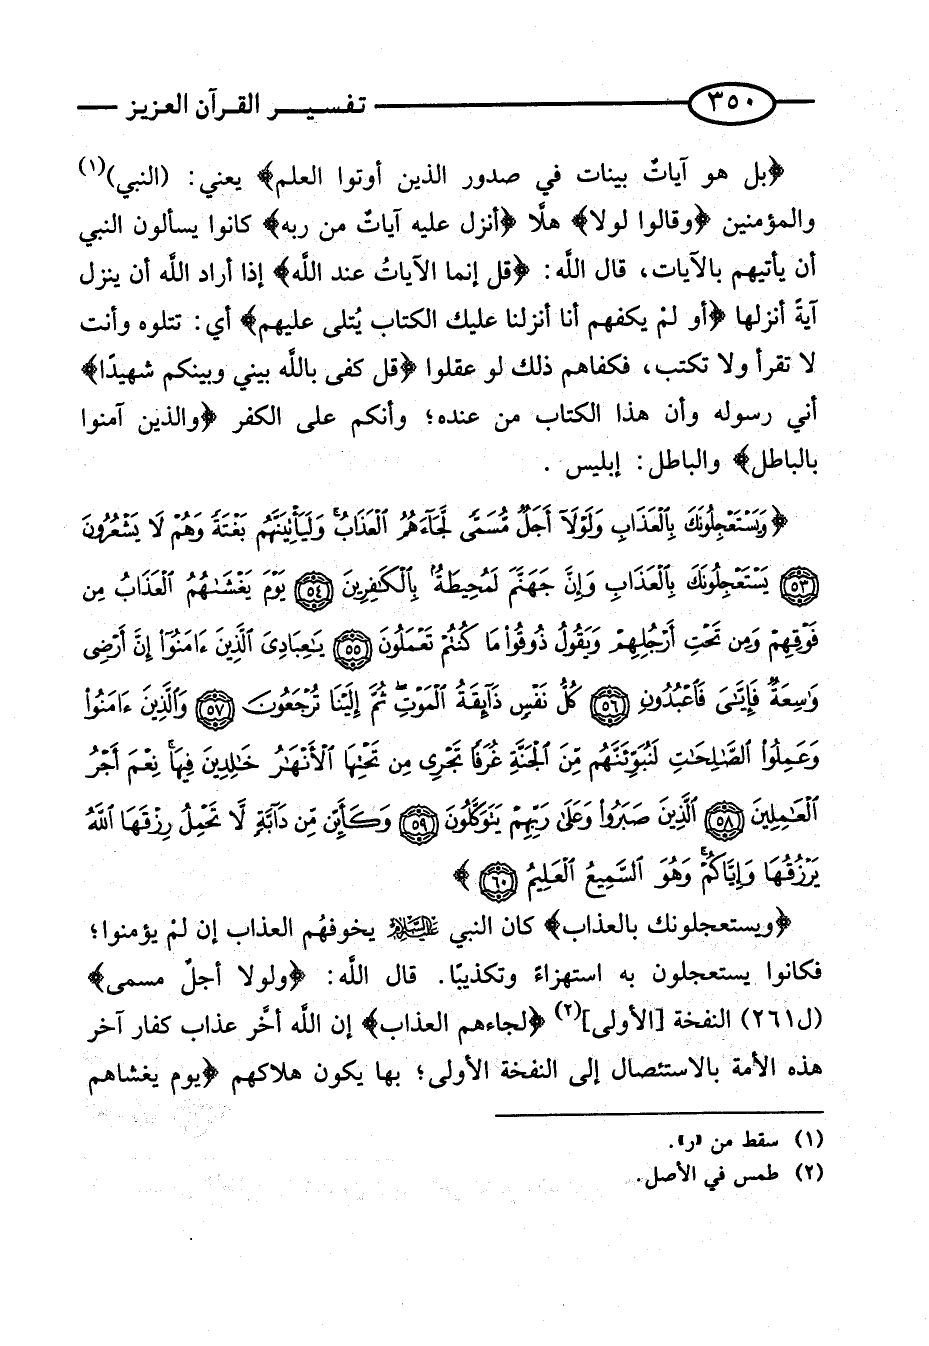 ٣٥٠ تفسير القرآن العزيز
﴿بل هو آياتٌ بينات في صدور الذين أوتوا العلم﴾ يعني: (النبي)(١)
والمؤمنين ﴿وقالوا لولا﴾ هلَّا ﴿أنزل عليه آياتٌ من ربه﴾ كانوا يسألون النبي
أن يأتيهم بالآيات، قال اللَّه: ﴿قل إنما الآياتُ عند اللَّه﴾ إذا أراد اللَّه أن ينزل
آيةً أنزلها ﴿أو لمْ يكفهم أنا أنزلنا عليك الكتاب يُتلى عليهم﴾ أي: تتلوه وأنت
لا تقرأ ولا تكتب، فكفاهم ذلك لو عقلوا ﴿قل كفى باللَّه بيني وبينكم شهيدًا﴾
أني رسوله وأن هذا الكتاب من عنده؛ وأنكم على الكفر ﴿والذين آمنوا
بالباطل﴾ والباطل: إبليس .
﴿وَيَسْتَعْجِلُونَكَ بِالْعَذَابِ وَلَوْلَآ أَجَلٌ مُّسَمًّى لَّجَآءَهُمُ الْعَذَابُ ۚ وَلَيَأْتِيَنَّهُم بَغْتَةً وَهُمْ لَا يَشْعُرُونَ
٥٣ يَسْتَعْجِلُونَكَ بِالْعَذَابِ وَإِنَّ جَهَنَّمَ لَمُحِيطَةٌ بِالْكَٰفِرِينَ ٥٤ يَوْمَ يَغْشَىٰهُمُ الْعَذَابُ مِن
فَوْقِهِمْ وَمِن تَحْتِ أَرْجُلِهِمْ وَيَقُولُ ذُوقُوا۟ مَا كُنتُمْ تَعْمَلُونَ ٥٥ يَٰعِبَادِىَ الَّذِينَ ءَامَنُوٓا۟ إِنَّ أَرْضِى
وَٰسِعَةٌ فَإِيَّٰىَ فَٱعْبُدُونِ ٥٦ كُلُّ نَفْسٍ ذَآئِقَةُ الْمَوْتِ ۖ ثُمَّ إِلَيْنَا تُرْجَعُونَ ٥٧ وَالَّذِينَ ءَامَنُوا۟
وَعَمِلُوا۟ الصَّٰلِحَٰتِ لَنُبَوِّئَنَّهُم مِّنَ الْجَنَّةِ غُرَفًا تَجْرِى مِن تَحْتِهَا الْأَنْهَٰرُ خَٰلِدِينَ فِيهَا ۚ نِعْمَ أَجْرُ
الْعَٰمِلِينَ ٥٨ الَّذِينَ صَبَرُوا۟ وَعَلَىٰ رَبِّهِمْ يَتَوَكَّلُونَ ٥٩ وَكَأَيِّن مِّن دَآبَّةٍ لَّا تَحْمِلُ رِزْقَهَا اللَّهُ
يَرْزُقُهَا وَإِيَّاكُمْ ۚ وَهُوَ السَّمِيعُ الْعَلِيمُ ٦٠﴾
﴿ويستعجلونك بالعذاب﴾ كان النبي عليه السلام يخوفهُم العذاب إن لمْ يؤمنوا؛
فكانوا يستعجلون به استهزاءً وتكذيبًا. قال اللَّه: ﴿ولولا أجلٌ مسمى﴾
(ل٢٦١) النفخة [الأولى](٢) ﴿لجاءهم العذاب﴾ إن اللَّه أخَّر عذاب كفار آخر
هذه الأمة بالاستئصال إلى النفخة الأولى؛ بها يكون هلاكهم ﴿يوم يغشاهم
(١) سقط من «ر».
(٢) طمس في الأصل.